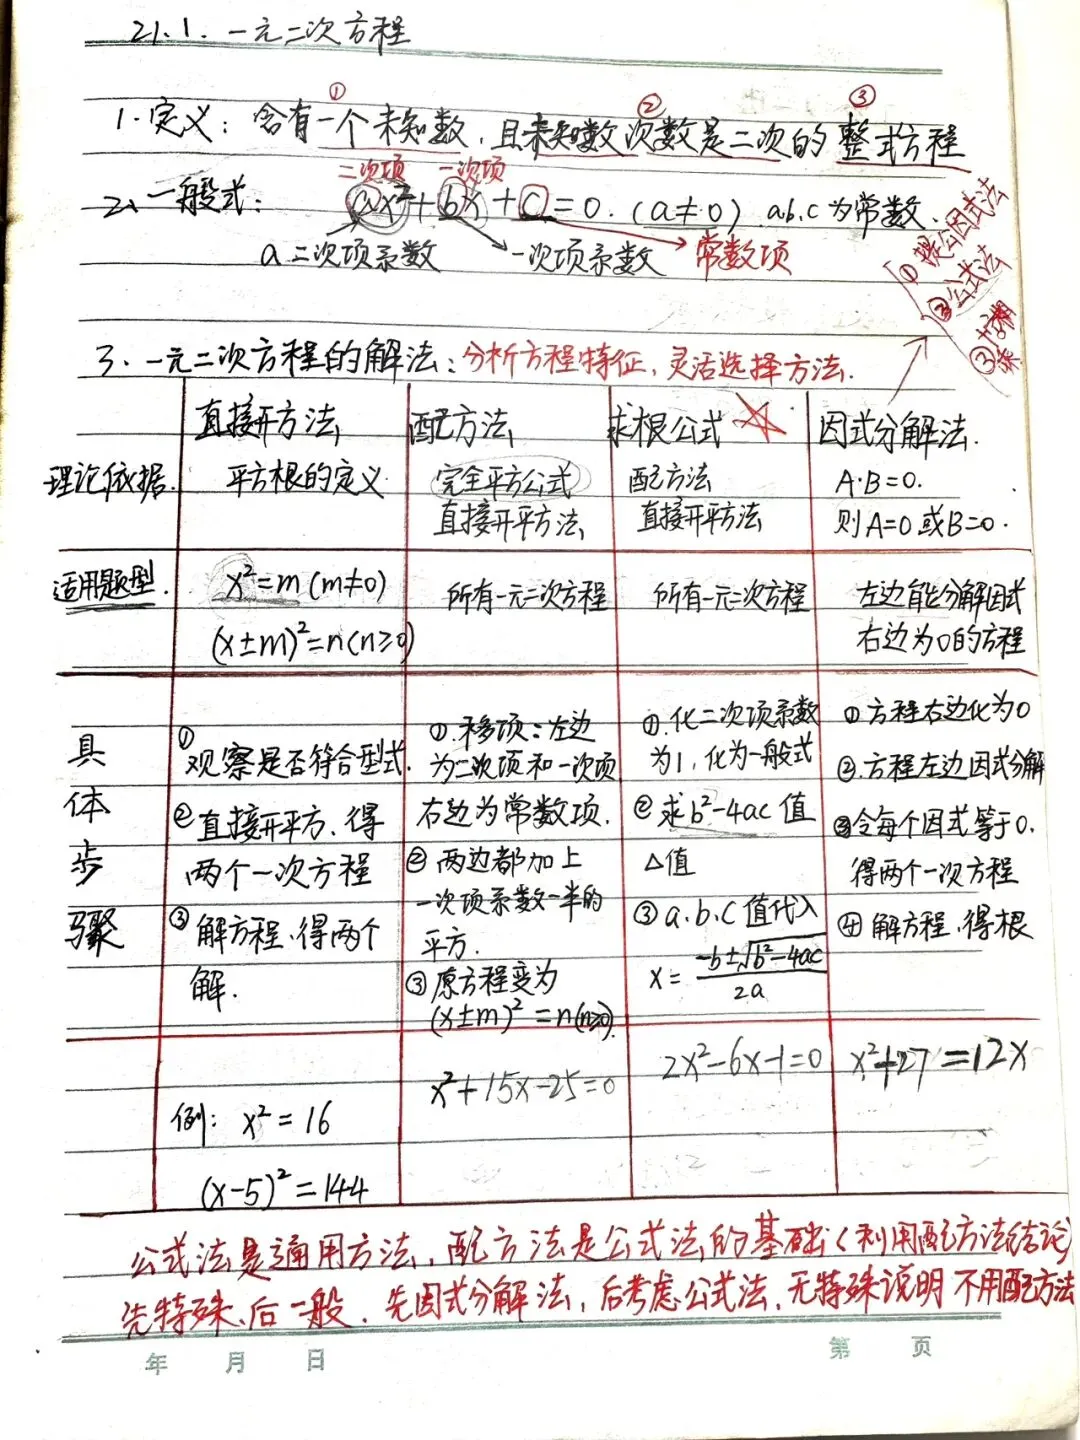 21.1. 一元二次方程
① ② ③
1.定义：含有一个未知数，且未知数次数是二次的整式方程
二次项 一次项
2、一般式：ax²+bx+c=0.（a≠0）a.b.c为常数．
a二次项系数 一次项系数 常数项
①提公因式法
②公式法
③十字相乘
3．一元二次方程的解法：分析方程特征，灵活选择方法．
直接开方法 配方法 求根公式 因式分解法．
理论依据． 平方根的定义 完全平方公式 配方法 A·B=0.
直接开平方法 直接开平方法 则A=0或B=0.
适用题型． x²=m(m≠0) 所有一元二次方程 所有一元二次方程 左边能分解因式
(x±m)²=n(n≥0) 右边为0的方程
具体步骤
①观察是否符合型式．
②直接开平方．得
两个一次方程
③解方程、得两个
解．
①．移项：左边
为二次项和一次项
右边为常数项．
②两边都加上
一次项系数一半的
平方．
③原方程变为
(x±m)²=n(n≥0).
①．化二次项系数
为1，化为一般式
②求b²-4ac值
△值
③a.b.c值代入
x=(-b±√(b²-4ac))/2a
①方程右边化为0
②．方程左边因式分解
③令每个因式等于0．
得两个一次方程
④解方程，得根
例：x²=16
(x-5)²=144
x²+15x-25=0
2x²-6x-1=0
x²+27=12x
公式法是通用方法，配方法是公式法的基础（利用配方法结论）
先特殊、后一般．先因式分解法，后考虑公式法，无特殊说明不用配方法
年 月 日 第 页